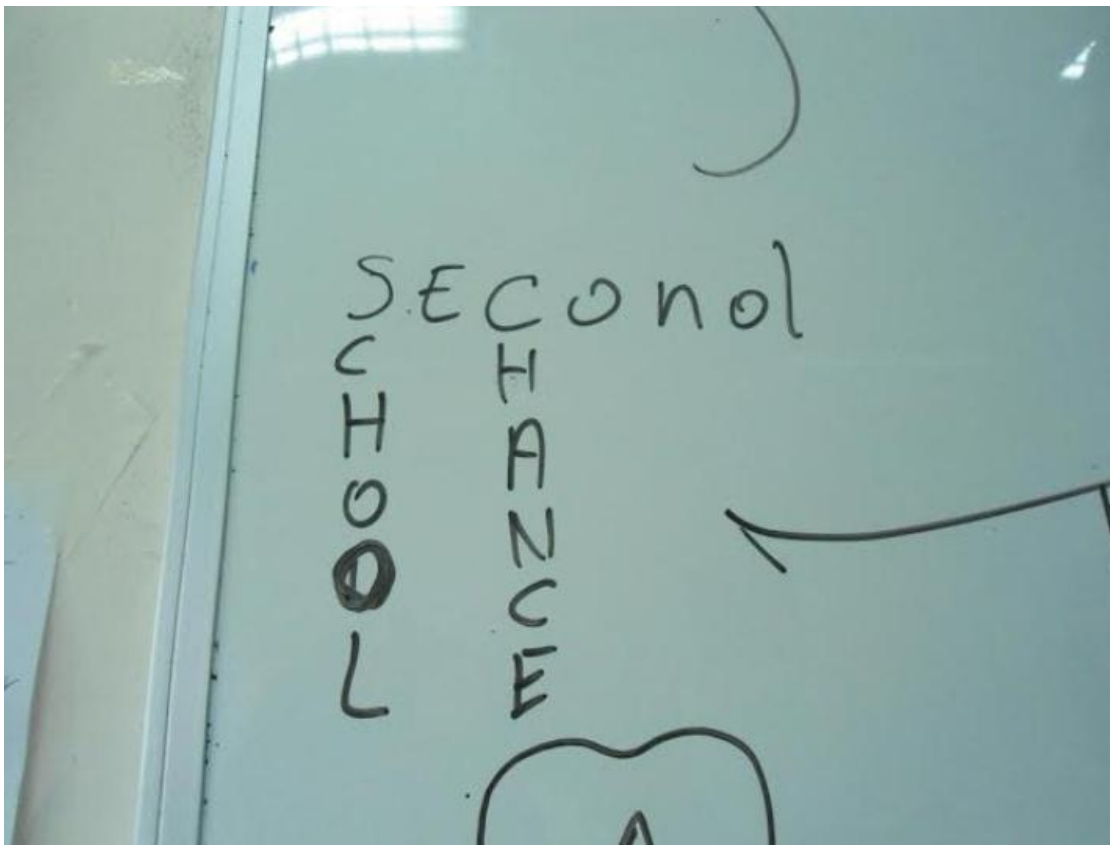 SECond
SCHOOL
CHANCE
A